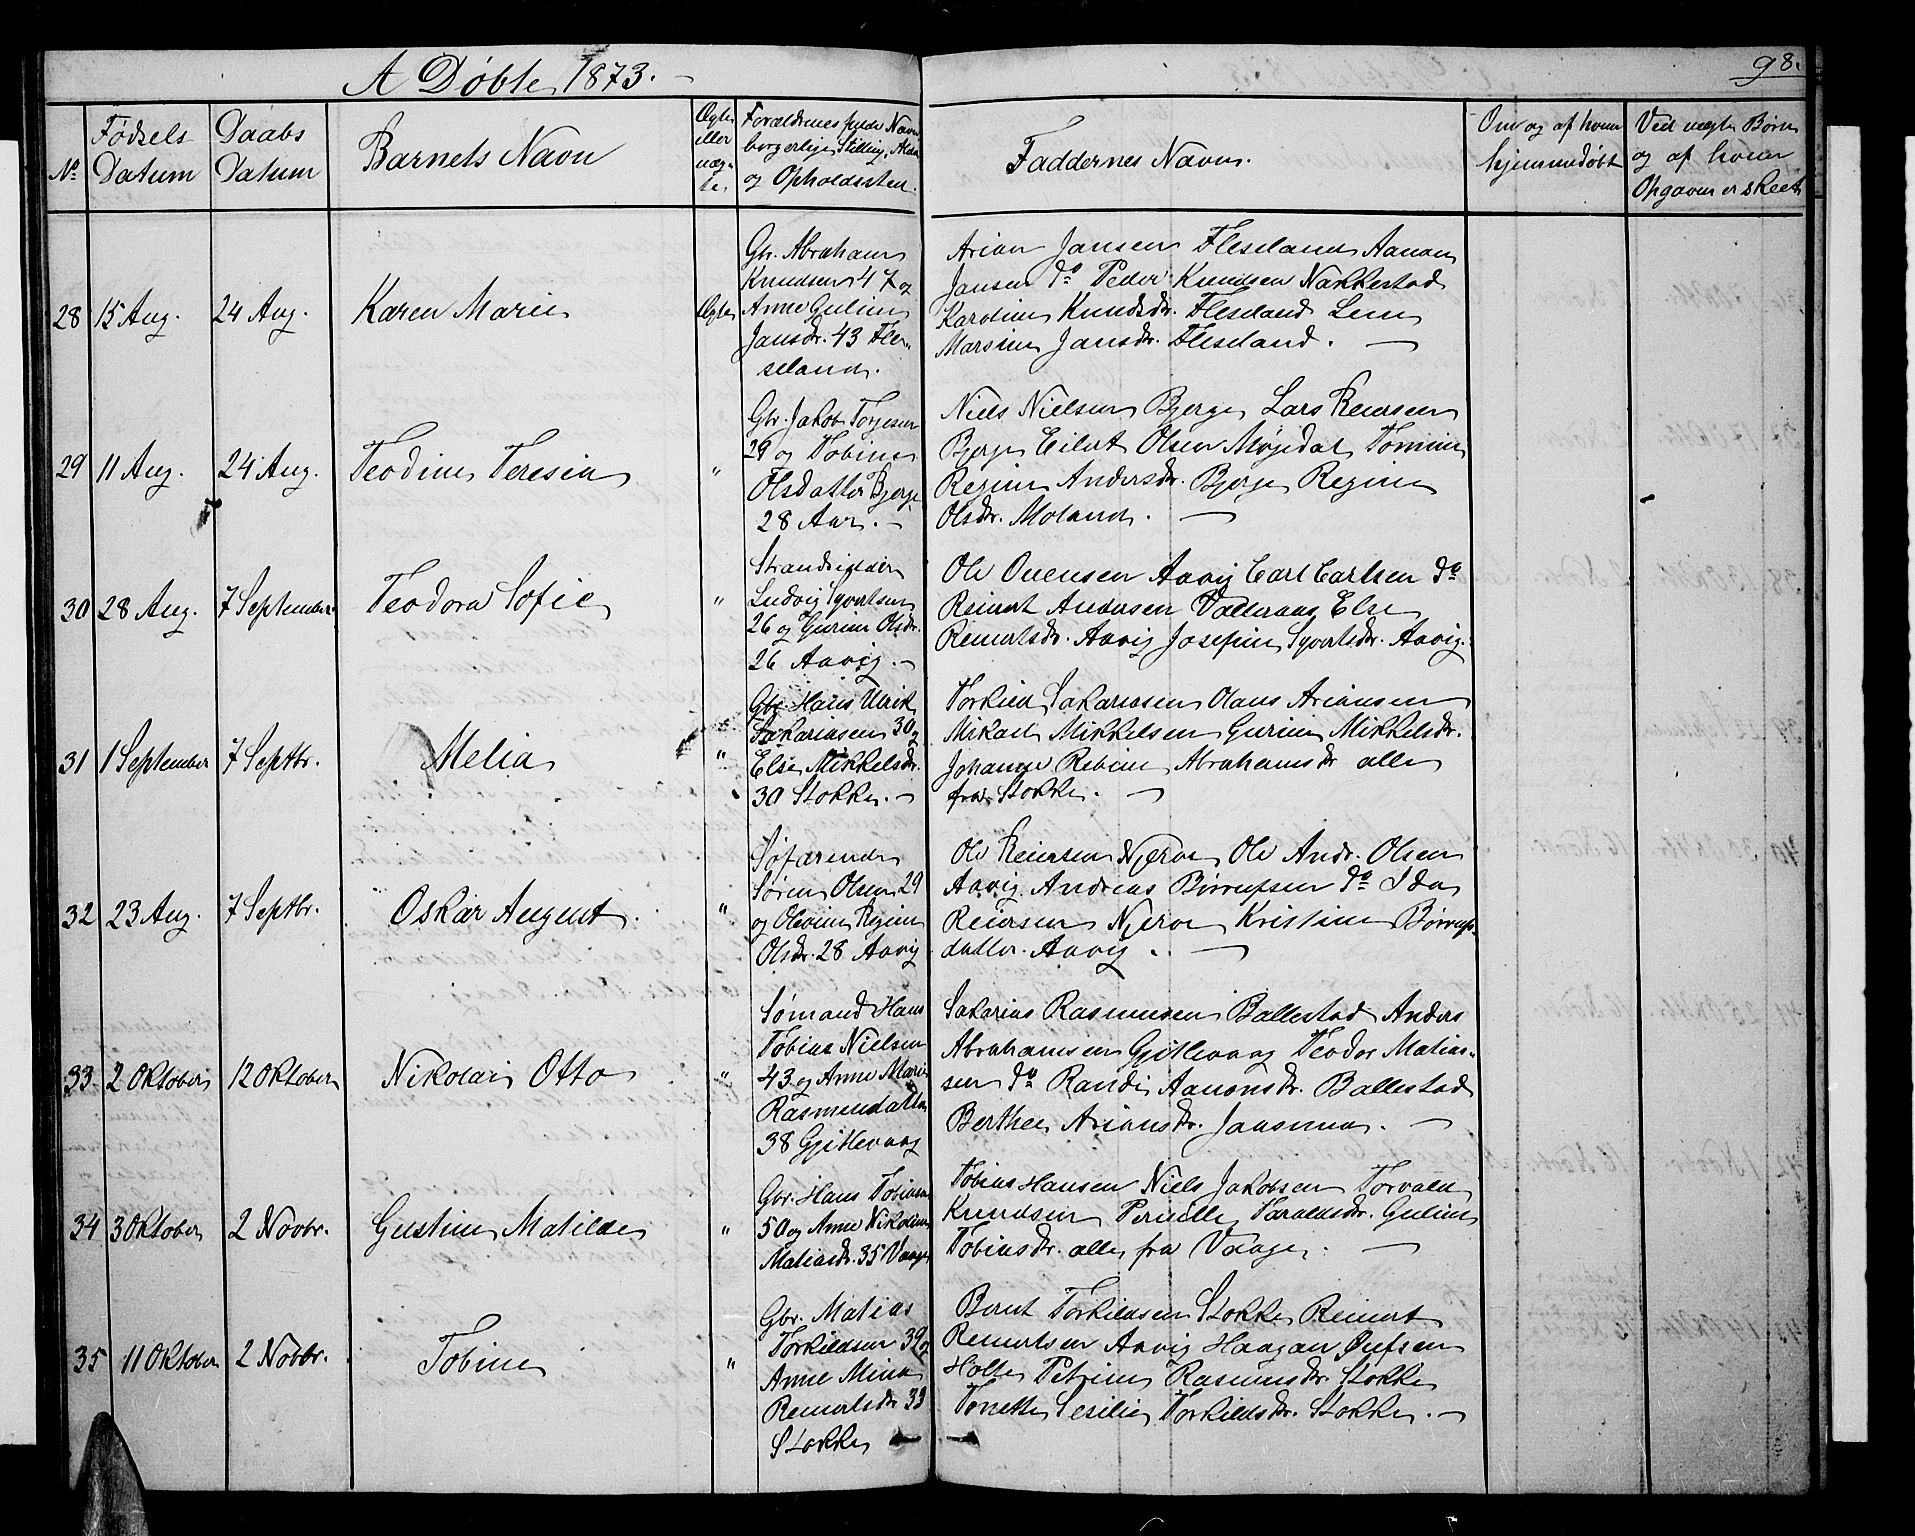 A Døbte 1873.
98.
No
Fødsels Datum
Daabs Datum
Barnets Navn
Ægte eller uæg-te.
Forældrenes fulde Navn borgerlige Stilling, Alder og Opholdssted.
Faddernes Navn.
Om og af hvem hjemmedøbt
Ved uægte Børn og af hvem Opgaven er skeet
28 15 Aug. 24 Aug. Karen Marie Ægte
Gbr. Abraham
Knudsen 47 og
Anne Guline
Jansdr. 43 Fles-
seland.
Arian Jansen Fleseland Aanon
Jansen do Peder Knudsen Nakkestad
Karoline Knudsdr. Fleseland Lene
Marsine Jansdr. Fleseland. —
29 11 Aug. 24 Aug. Teodine Teresia "
Gbr. Jakob Torjesen
29 og Tobine
Olsdatter Bjerge
28 Aar. —
Niels Nielsen Bjerge Lars Reiersen
Bjerge Eilert Olsen Møgedal Tomine
Regine Andersdr. Bjerge Regine
Olsdr. Moland. —
30 28 Aug. 7 September Teodora Sofie "
Strandsidder
Ludvig Syvertsen
26 og Gurine Olsdr.
26 Aavig. —
Ole Ouensen Aavig Carl Carlsen do
Reinert Andersen Valleraas Else
Reinertsdr. Aavig Josefine Syvertsdr. Aavig.
31 1 September 7 Septbr. Melia "
Gbr. Hans Ulrik
Sakariasen 30 og
Else Mikkelsdr.
30 Stokke. —
Torkild Sakariasen Olaus Ariansen
Mikael Mikkelsen Gurine Mikkelsdr.
Johanne Rebine Abrahamsdr alle
fra Stokke. —
32 23 Aug. 7 Septbr. Oskar August. "
Søfarende
Søren Olsen 29
og Olevine Regine
Olsdr. 28 Aavig
Ole Reiersen Njerve Ole Andr. Olsen
Aavig Andreas Børrufsen do Ida
Reiersen Njerve Kristine Børrufs-
datter. Aavig. —
33 2 Oktober 12 Oktober Nikolai Otto "
Sømand Hans
Tobias Nielsen
43 og Anne Marie
Rasmusdatter
38 Gjitlevaag
Sakarias Rasmussen Ballestad Anders
Abrahamsen Gjitlevaag Teodor Matias-
sen do Randi Aanonsdr. Ballestad
Berthe Ariansdr. Jaasund. —
34 3 Oktober 2 Novbr. Gustine Matilde "
Gbr. Hans Tobiasen
50 og Anne Nikoline
Matiasdr. 35 Vaage
Tobias Hansen Niels Jakobsen Torvald
Knudsen Pernille Haraldsdr. Guline
Tobiasdr. alle fra Vaage. —
35 11 Oktober 2 Novbr. Tobine "
Gbr. Matias
Torkildsen 39 og
Anne Mina
Reinertsdr 33
Stokke
Bernt Torkildsen Stokke Reinert
Reinertsen Aavig Haagan Ønfsen
Holte Petrine Rasmusdr. Stokke
Tonette Sesilie Torkildsdr. Stokke. —